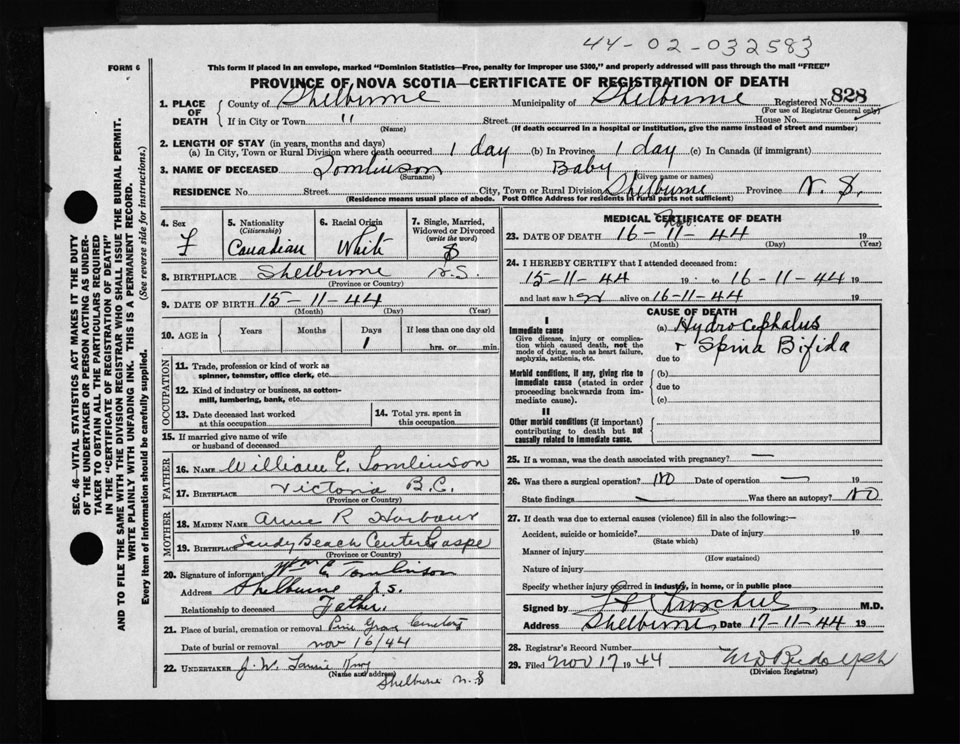 44-02-032583
FORM 6
This form if placed in an envelope, marked "Dominion Statistics—Free, penalty for improper use $300," and properly addressed will pass through the mail "FREE"
PROVINCE OF NOVA SCOTIA—CERTIFICATE OF REGISTRATION OF DEATH
1. PLACE OF DEATH
County of Shelburne Municipality of Shelburne Registered No. 828
(For use of Registrar General only)
If in City or Town " Street House No.
(Name) (If death occurred in a hospital or institution, give the name instead of street and number)
2. LENGTH OF STAY (in years, months and days)
(a) In City, Town or Rural Division where death occurred 1 day (b) In Province 1 day (c) In Canada (if immigrant)
3. NAME OF DECEASED Tomlinson Baby
(Surname) (Given name or names)
RESIDENCE No. Street City, Town or Rural Division Shelburne Province N.S.
(Residence means usual place of abode. Post Office Address for residents in rural parts not sufficient)
4. Sex F
5. Nationality (Citizenship) Canadian
6. Racial Origin White
7. Single, Married, Widowed or Divorced (write the word) S
8. BIRTHPLACE Shelburne N.S.
(Province or Country)
9. DATE OF BIRTH 15-11-44
(Month) (Day) (Year)
10. AGE in Years Months Days If less than one day old
1 hrs. or min.
OCCUPATION
11. Trade, profession or kind of work as spinner, teamster, office clerk, etc.
12. Kind of industry or business, as cotton-mill, lumbering, bank, etc.
13. Date deceased last worked at this occupation
14. Total yrs. spent in this occupation
15. If married give name of wife or husband of deceased
FATHER
16. NAME William E. Tomlinson
17. BIRTHPLACE Victoria B.C.
(Province or Country)
MOTHER
18. MAIDEN NAME Anne R Harbour
19. BIRTHPLACE Sandy Beach Center Gaspe
(Province or Country)
20. Signature of informant Wm E Tomlinson
Address Shelburne N.S.
Relationship to deceased Father.
21. Place of burial, cremation or removal Pine Grove Cemetery
Date of burial or removal Nov 16/44
22. UNDERTAKER J. W.
(Name and address)
Shelburne N.S
MEDICAL CERTIFICATE OF DEATH
Nov.
23. DATE OF DEATH 16-11-44 19
(Month) (Day) (Year)
24. I HEREBY CERTIFY that I attended deceased from:
15-11-44 19 to 16-11-44 19
and last saw her alive on 16-11-44 19
CAUSE OF DEATH
I
Immediate cause
Give disease, injury or complication which caused death, not the mode of dying, such as heart failure, asphyxia, asthenia, etc.
(a) Hydrocephalus
+ Spina Bifida
due to
Morbid conditions, if any, giving rise to immediate cause (stated in order proceeding backwards from immediate cause).
(b)
due to
(c)
II
Other morbid conditions (if important) contributing to death but not causally related to immediate cause.
25. If a woman, was the death associated with pregnancy? —
26. Was there a surgical operation? No Date of operation — 19
State findings — Was there an autopsy? No
27. If death was due to external causes (violence) fill in also the following:—
Accident, suicide or homicide? Date of injury 19
(State which)
Manner of injury
(How sustained)
Nature of injury
Specify whether injury occurred in industry, in home, or in public place
Signed by M.D.
Address Shelburne, Date 17-11-44 19
28. Registrar's Record Number
29. Filed Nov 17 1944 Rudolph
(Division Registrar)
SEC. 46—VITAL STATISTICS ACT MAKES IT THE DUTY
OF THE UNDERTAKER OR PERSON ACTING AS UNDER-
TAKER TO OBTAIN ALL THE PARTICULARS REQUIRED
IN THE "CERTIFICATE OF REGISTRATION OF DEATH"
AND TO FILE THE SAME WITH THE DIVISION REGISTRAR WHO SHALL ISSUE THE BURIAL PERMIT.
WRITE PLAINLY WITH UNFADING INK. THIS IS A PERMANENT RECORD.
Every item of information should be carefully supplied. (See reverse side for instructions.)